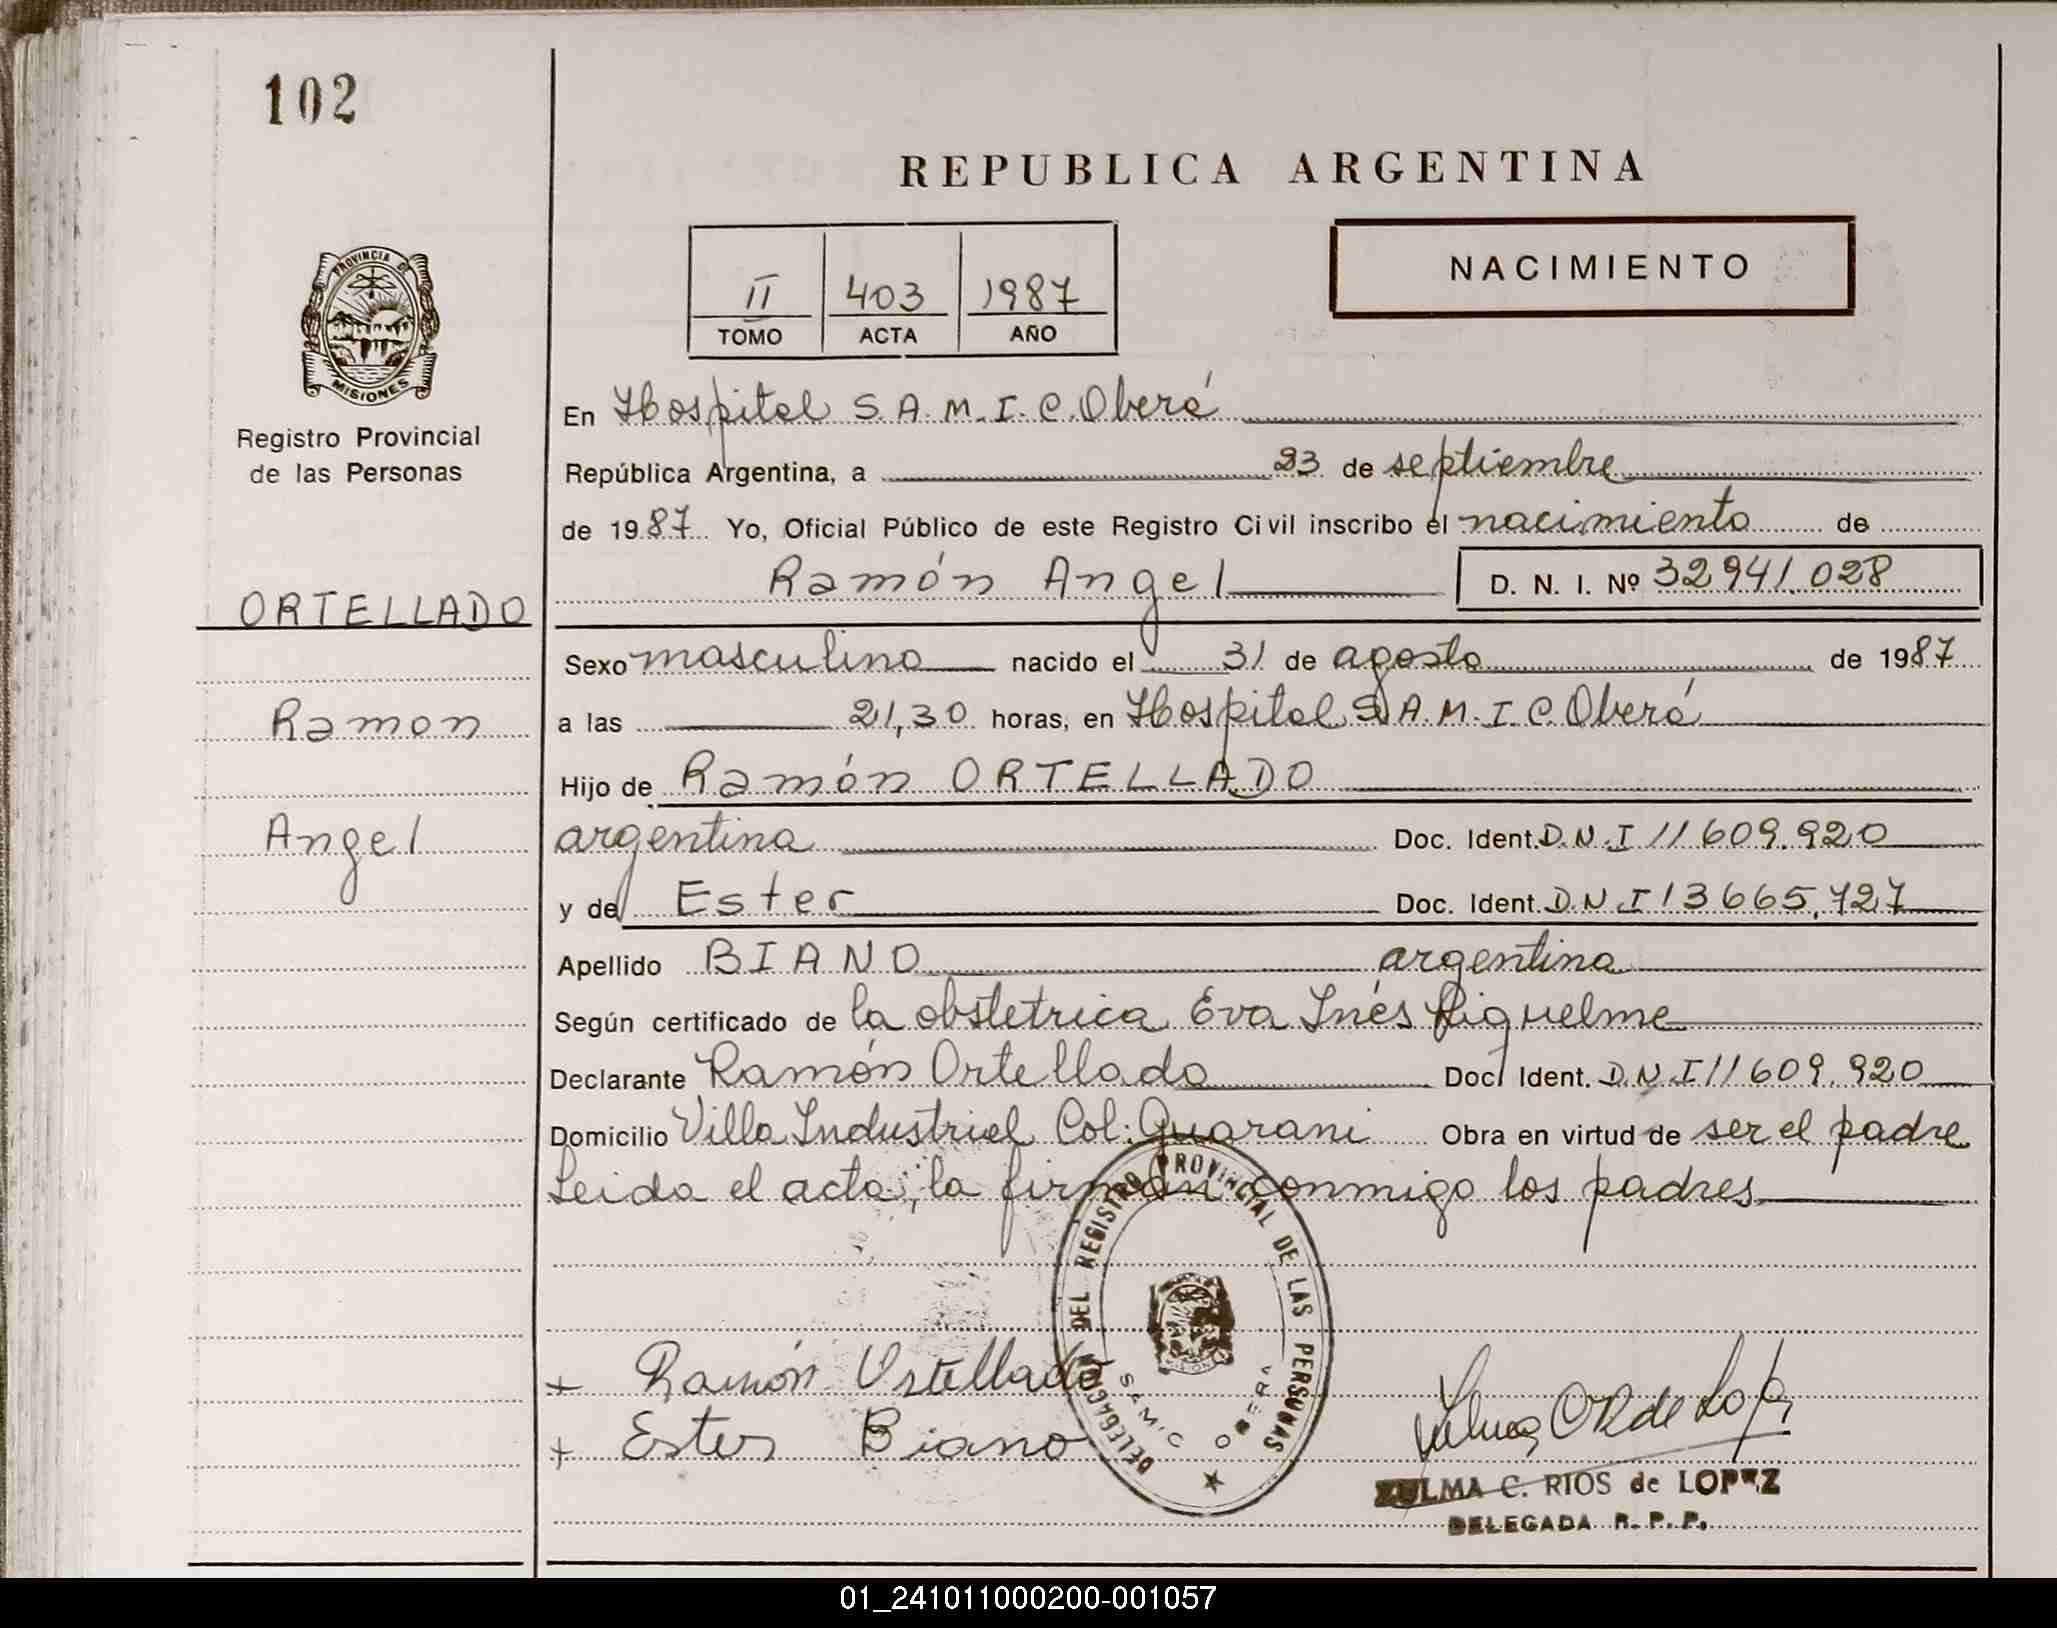 102
REPUBLICA ARGENTINA
NACIMIENTO
II 403 1987
TOMO ACTA AÑO
PROVINCIA DE
MISIONES
Registro Provincial
de las Personas
En Hospital S.A.M.I.C. Oberá
República Argentina, a 23 de septiembre
de 1987 Yo, Oficial Público de este Registro Civil inscribo el nacimiento de
Ramón Angel D. N. I. Nº 32941.028
ORTELLADO
Sexo masculino nacido el 31 de agosto de 1987
Ramon
a las 21,30 horas, en Hospital S.A.M.I.C. Oberá
Hijo de Ramón ORTELLADO
Angel
argentina Doc. Ident. D.N.I 11609.920
y de Ester Doc. Ident. D.N.I 13665.727
Apellido BIANO argentina
Según certificado de la obstetrica Eva Inés Riquelme
Declarante Ramón Ortellado Doc. Ident. D.N.I 11609.920
Domicilio Villa Industrial Col. Guarani Obra en virtud de ser el padre
Leida el acta, la firman conmigo los padres
DELEGACION DEL REGISTRO PROVINCIAL DE LAS PERSONAS
SAMIC OBERA
MISIONES
+ Ramón Ortellado
+ Ester Biano
Zulma C R de Lopez
ZULMA C. RIOS de LOPEZ
DELEGADA R. P. P.
01_241011000200-001057